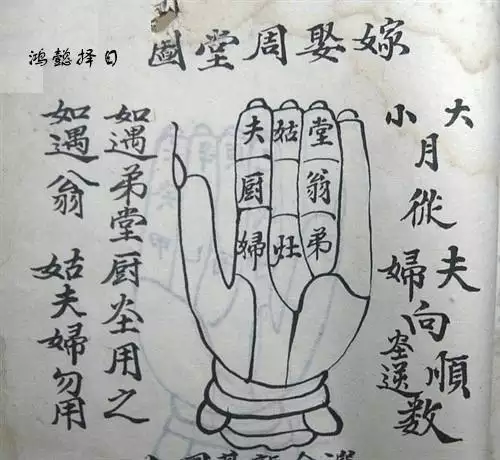 鸿懿择日
嫁娶周堂圖
大
小
月從
夫
婦
向
順
灶逆
數
夫 姑 堂
厨 翁
婦 灶 弟
如遇弟堂厨灶用之
如遇翁姑夫婦勿用